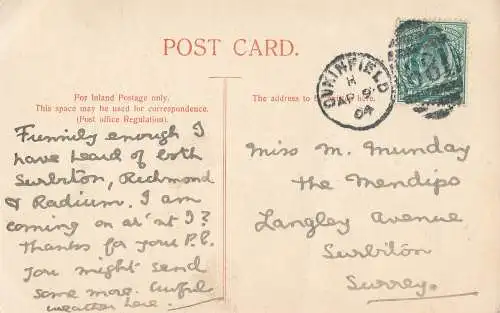 POST CARD.
For Inland Postage only.
This space may be used for correspondence.
(Post office Regulation).
The address to be here.
DUKINFIELD
H
AP 9
04
Funnily enough I
have heard of both
Surbiton, Richmond
& Radium. I am
coming on at' nt I?
Thanks for your P.C.
You might send
some more. Awful
weather here.
Miss M. Munday
The Mendips
Langley Avenue
Surbiton
Surrey.